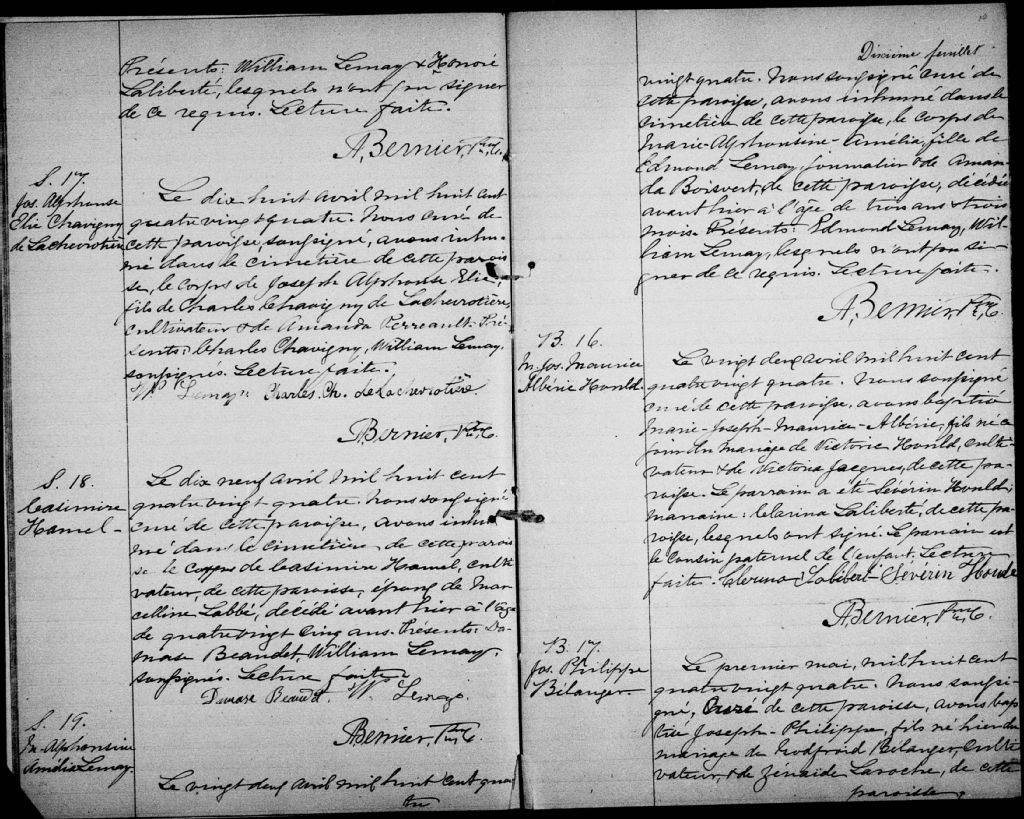 Présents: William Lemay & Honoré
Laliberté, lesquels n'ont pu signer
de ce requis. Lecture faite.
A. Bernier, Ptre C.
S. 17.
Jos. Alphonse
Elie Chavigny
de Lachevrotière
Le dix huit avril mil huit cent
quatre vingt quatre. Nous curé de
cette paroisse, soussigné, avons inhu-
mé dans le cimetière de cette parois
se, le corps de Joseph Alphonse Elie,
fils de Charles Chavigny de Lachevrotière,
cultivateur & de Amanda Perreault. Pré-
sents: Charles Chavigny, William Lemay,
soussignés. Lecture faite.
Wm Lemay Charles. Ch. de Lachevrotière
A. Bernier, Ptre C.
S. 18.
Casimire
Hamel -
Le dix neuf avril mil huit cent
quatre vingt quatre. Nous soussigné
curé de cette paroisse, avons inhu
mé dans le cimetière de cette parois
se le corps de Casimire Hamel, culti
vateur, de cette paroisse, époux de Mar-
celline Labbé, décédé avant hier à l'âge
de quatre vingt cinq ans. Présents: Da-
mase Beaudet, William Lemay,
soussignés. Lecture faite.
Damase Beaudet Wm Lemay
A. Bernier, Ptre C.
S. 19.
M-Alphonsine
Amélia Lemay.
Le vingt deux avril mil huit cent qua
tre
10
Dixième feuillet
vingt quatre. Nous soussigné curé de
cette paroisse, avons inhumé dans le
cimetière de cette paroisse, le corps de
Marie-Alphonsine-Amélia, fille de
Edmond Lemay, journalier & de Aman-
da Boisvert, de cette paroisse, décédée
avant hier à l'âge de trois ans & trois
mois. Présents: Edmond Lemay, Wil-
liam Lemay, lesquels n'ont pu si-
gner de ce requis. Lecture faite.
A. Bernier, Ptre C.
B. 16.
M. Jos. Maurice
Albéric Hould
Le vingt deux avril mil huit cent
quatre vingt quatre. Nous soussigné
curé de cette paroisse, avons baptisé
Marie-Joseph-Maurice-Albéric, fils né ce
jour du mariage de Victorie Hould, culti-
vateur & de Victoria Jacques, de cette pa-
roisse. Le parrain a été Sévérin Hould;
marraine: Clarina Laliberté, de cette pa-
roisse, lesquels ont signé. Le parrain est
le cousin paternel de l'enfant. Lecture
faite. Laliberté Sévérin Houde
A. Bernier, Ptre C.
B. 17.
Jos. Philippe
Bélanger
Le premier mai, mil huit cent
quatre vingt quatre. Nous soussi-
gné, Curé de cette paroisse, avons bap
tisé Joseph-Philippe, fils né hier du
mariage de Godfroid Bélanger, culti
vateur, & de Zénaïde Laroche, de cette
paroisse,